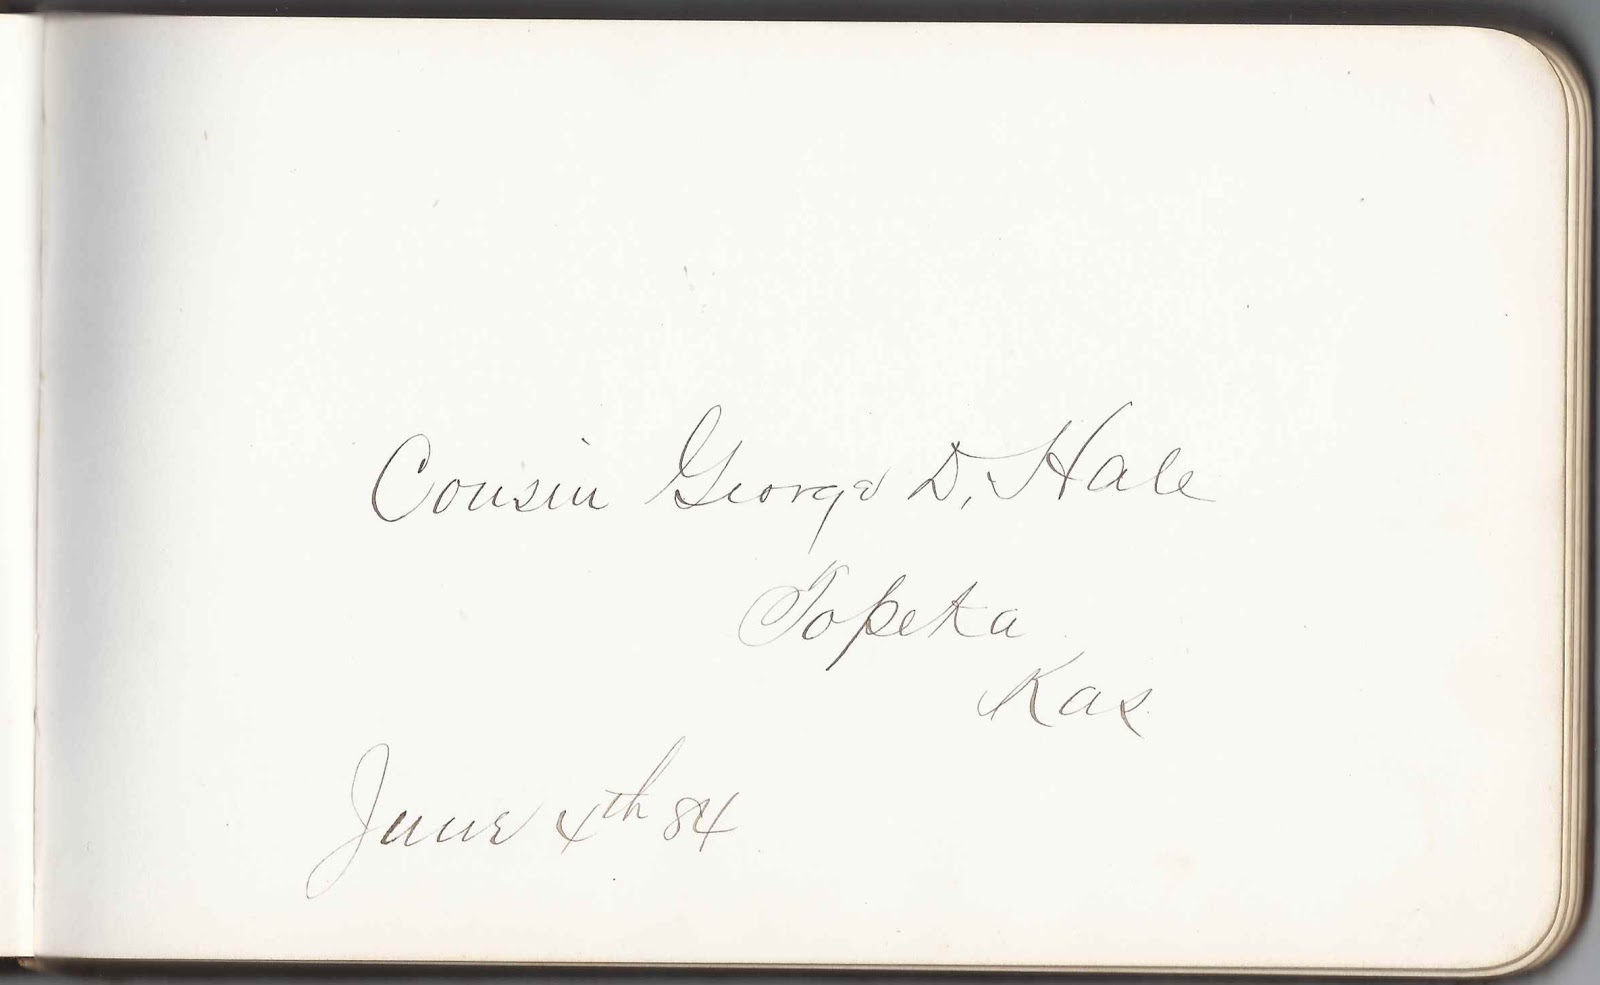 Cousin George D. Hale
Topeka
Kas.
June 4th 84